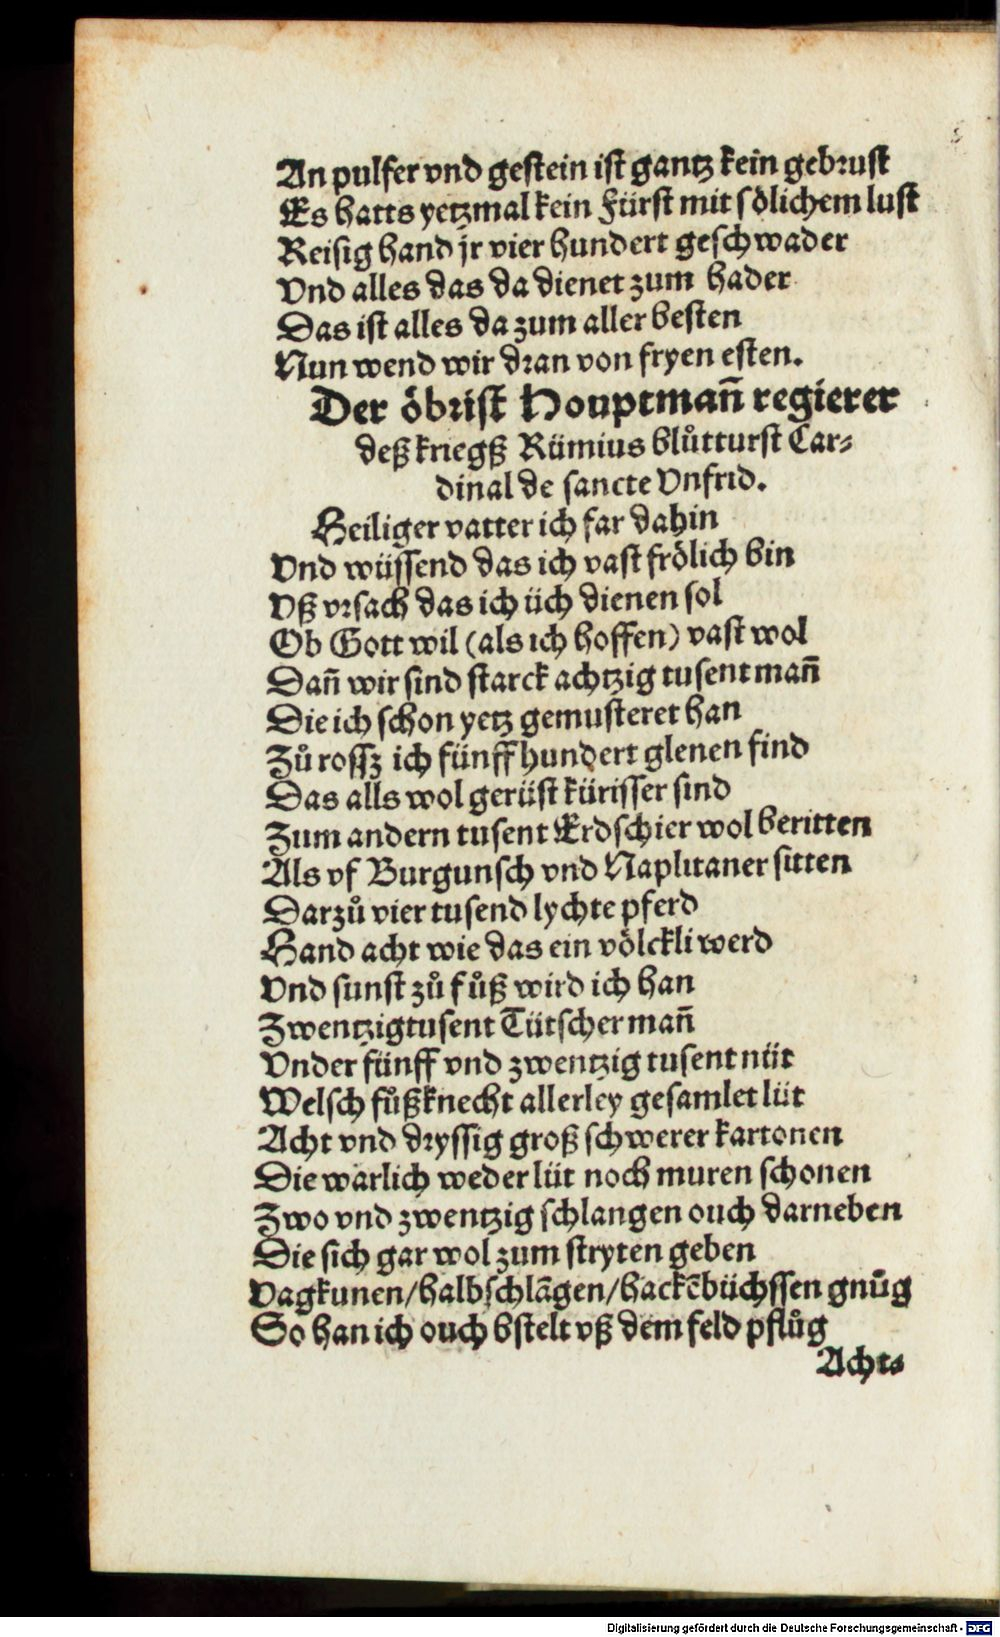 An pulfer vnd gestein ist gantz kein gebrust
Es hatts yetzmal kein Fürst mit sölichem lust
Reisig hand jr vier hundert geschwader
Vnd alles das da dienet zum hader
Das ist alles da zum aller besten
Nun wend wir dran von fryen esten.
Der öbrist Houptmañ regierer
deß kriegß Rümius blůtturst Car⸗
dinal de sancte Vnfrid.
Heiliger vatter ich far dahin
Vnd wüssend das ich vast frölich bin
Vß vrsach das ich üch dienen sol
Ob Gott wil (als ich hoffen) vast wol
Dañ wir sind starck achtzig tusent mañ
Die ich schon yetz gemusteret han
Zů rossz ich fünff hundert glenen find
Das alls wol gerüst kürisser sind
Zum andern tusent Erdschier wol beritten
Als vf Burgunsch vnd Naplitaner sitten
Darzů vier tusend lychte pferd
Hand acht wie das ein völckli werd
Vnd sunst zů fůß wird ich han
Zwentzigtusent Tütscher mañ
Vnder fünff vnd zwentzig tusent nüt
Welsch fůßknecht allerley gesamlet lüt
Acht vnd dryssig groß schwerer kartonen
Die warlich weder lüt noch muren schonen
Zwo vnd zwentzig schlangen ouch darneben
Die sich gar wol zum stryten geben
Vagkunen/halbschlãgen/hackẽbüchssen gnůg
So han ich ouch bstelt vß dem feld pflůg
Acht⸗
Digitalisierung gefördert durch die Deutsche Forschungsgemeinschaft - DFG